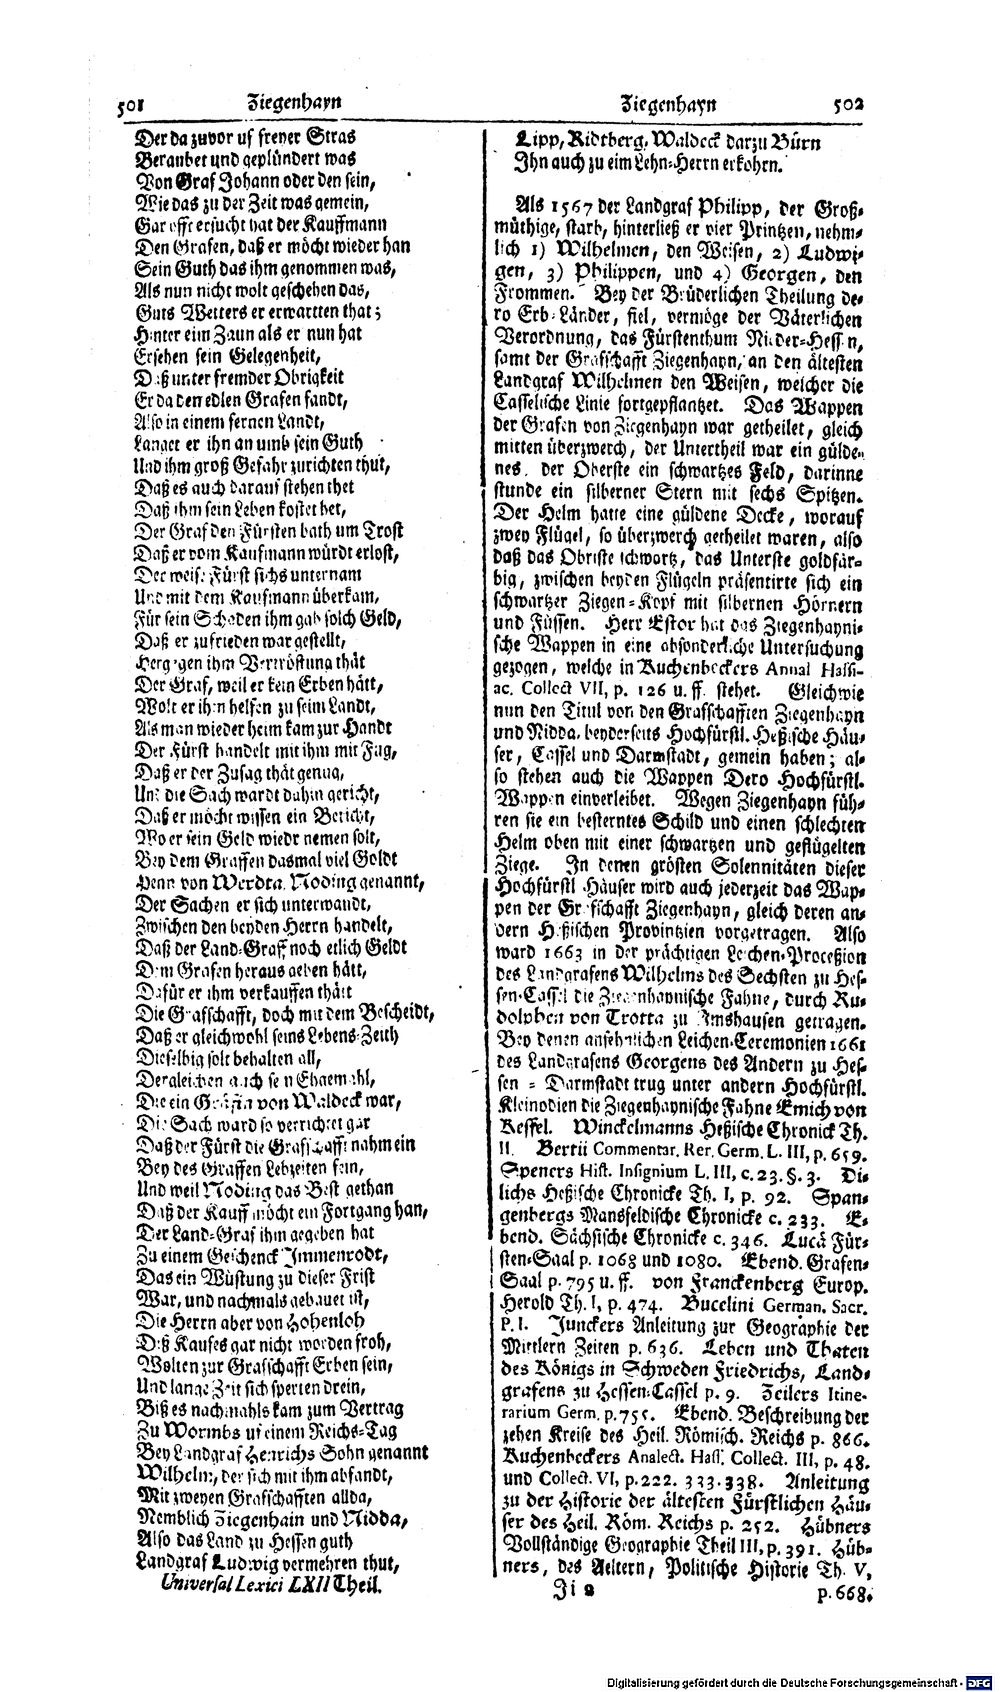 501 Ziegenhayn
Der da zuvor uf freyer Stras
Beraubet und geplündert was
Von Graf Johann oder den sein,
Wie das zu der Zeit was gemein,
Gar offt ersucht hat der Kauffmann
Den Grafen, daß er möcht wieder han
Sein Guth das ihm genommen was,
Als nun nicht wolt geschehen das,
Guts Wetters er erwartten that;
Hinter eim Zaun als er nun hat
Ersehen sein Gelegenheit,
Daß unter fremder Obrigkeit
Er da den edlen Grafen fandt,
Also in einem fernen Landt,
Langet er ihn an umb sein Guth
Und ihm groß Gefahr zurichten thut,
Daß es auch darauf stehen thet
Daß ihm sein Leben kostet het,
Der Graf den Fürsten bath um Trost
Daß er vom Kaufmann würdt erlost,
Der weise Fürst sichs unternam
Und mit dem Kaufmann überkam,
Für sein Schaden ihm gab solch Geld,
Daß er zufrieden war gestellt,
Hergegen ihm Vertröstung thät
Der Graf, weil er kein Erben hätt,
Wolt er ihn helfen zu seim Landt,
Als man wieder heim kam zur Handt
Der Fürst handelt mit ihm mit Fug,
Daß er der Zusag thät genug,
Und die Sach wardt dahin gericht,
Daß er möcht wissen ein Bericht,
Wo er sein Geld wiedr nemen solt,
Bey dem Graffen dasmal viel Goldt
Henn von Werdta, Noding genannt,
Der Sachen er sich unterwandt,
Zwischen den beyden Herrn handelt,
Daß der Land-Graff noch etlich Geldt
Dem Grafen heraus geben hätt,
Dafür er ihm verkauffen thätt
Die Grafschafft, doch mit dem Bescheidt,
Daß er gleichwohl seins Lebens-Zeith
Dieselbig solt behalten all,
Dergleichen auch sein Ehgemahl,
Die ein Gräfin von Waldeck war,
Die Sach ward so verrichtet gar
Daß der Fürst die Grafschafft nahm ein
Bey des Graffen Lebzeiten sein,
Und weil Noding das Best gethan
Daß der Kauff möcht ein Fortgang han,
Der Land-Graf ihm gegeben hat
Zu einem Geschenck Immenrodt,
Das ein Wüstung zu dieser Frist
War, und nachmals gebauet ist,
Die Herrn aber von Hohenloh
Diß Kaufes gar nicht worden froh,
Wolten zur Grafschafft Erben sein,
Und lange Zeit sich sperten drein,
Biß es nachmahls kam zum Vertrag
Zu Wormbs uf einem Reichs-Tag
Bey Landgraf Henrichs Sohn genannt
Wilhelm, der sich mit ihm abfandt,
Mit zweyen Grafschafften allda,
Nemblich Ziegenhain und Nidda,
Also das Land zu Hessen guth
Landgraf Ludwig vermehren thut,
Universal Lexici LXII Theil.
Ziegenhayn 502
Lipp, Ridtberg, Waldeck darzu Bürn
Ihn auch zu eim Lehn-Herrn erkohrn.
Als 1567 der Landgraf Philipp, der Groß-
müthige, starb, hinterließ er vier Printzen, nehm-
lich 1) Wilhelmen, den Weisen, 2) Ludwi-
gen, 3) Philippen, und 4) Georgen, den
Frommen. Bey der Brüderlichen Theilung de-
ro Erb-Länder, fiel, vermöge der Väterlichen
Verordnung, das Fürstenthum Nieder-Hessen,
samt der Grafschafft Ziegenhayn, an den ältesten
Landgraf Wilhelmen den Weisen, welcher die
Casselische Linie fortgepflantzet. Das Wappen
der Grafen von Ziegenhayn war getheilet, gleich
mitten überzwerch, der Untertheil war ein gülde-
nes, der Oberste ein schwartzes Feld, darinne
stunde ein silberner Stern mit sechs Spitzen.
Der Helm hatte eine güldene Decke, worauf
zwey Flügel, so überzwerch getheilet waren, also
daß das Obriste schwartz, das Unterste goldfär-
big, zwischen beyden Flügeln präsentirte sich ein
schwartzer Ziegen-Kopf mit silbernen Hörnern
und Füssen. Herr Estor hat das Ziegenhayni-
sche Wappen in eine absonderliche Untersuchung
gezogen, welche in Kuchenbeckers Annal Hassi-
ac. Collect VII, p. 126 u. ff. stehet. Gleichwie
nun den Titul von den Grafschafften Ziegenhayn
und Nidda, beyderseits Hochfürstl. Heßische Häu-
ser, Cassel und Darmstadt, gemein haben; al-
so stehen auch die Wappen Dero Hochfürstl.
Wappen einverleibet. Wegen Ziegenhayn füh-
ren sie ein besterntes Schild und einen schlechten
Helm oben mit einer schwartzen und geflügelten
Ziege. In denen grösten Solennitäten dieser
Hochfürstl Häuser wird auch jederzeit das Wap-
pen der Grafschafft Ziegenhayn, gleich deren an-
dern Heßischen Provintzien vorgetragen. Also
ward 1663 in der prächtigen Leichen-Proceßion
des Landgrafens Wilhelms des Sechsten zu Hes-
sen-Cassel die Ziegenhaynische Fahne, durch Ru-
dolphen von Trotta zu Imshausen getragen.
Bey denen ansehnlichen Leichen-Ceremonien 1661
des Landgrafens Georgens des Andern zu Hes-
sen-Darmstadt trug unter andern Hochfürstl.
Kleinodien die Ziegenhaynische Fahne Emich von
Keffel. Winckelmanns Heßische Chronick Th.
II. Bertii Commentar. Rer. Germ. L. III, p. 659.
Speners Hist. Insignium L. III, c. 23. §. 3. Di-
lichs Heßische Chronicke Th. I, p. 92. Span-
genbergs Mansfeldische Chronicke c. 233. E-
bend. Sächsische Chronicke c. 346. Lucä Für-
sten-Saal p. 1068 und 1080. Ebend. Grafen-
Saal p. 795 u. ff. von Franckenberg Europ.
Herold Th. I, p. 474. Bucelini German. Sacr.
P. I. Junckers Anleitung zur Geographie der
Mittlern Zeiten p. 636. Leben und Thaten
des Königs in Schweden Friedrichs, Land-
grafens zu Hessen-Cassel p. 9. Zeilers Itine-
rarium Germ. p. 755. Ebend. Beschreibung der
zehen Kreise des Heil. Römisch. Reichs p. 866.
Kuchenbeckers Analect. Hass. Collect. III, p. 48.
und Collect. VI, p. 222. 333. 338. Anleitung
zu der Historie der ältesten Fürstlichen Häu-
ser des Heil. Röm. Reichs p. 252. Hübners
Vollständige Geographie Theil III, p. 391. Hüb-
ners, des Aeltern, Politische Historie Th. V,
Ii 2 p. 668.
Digitalisierung gefördert durch die Deutsche Forschungsgemeinschaft - DFG